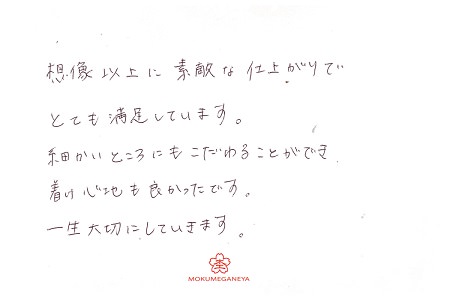 想像以上に素敵な仕上がりで
とても満足しています。
細かいところにもこだわることができ
着け心地も良かったです。
一生大切にしていきます。
MOKUMEGANEYA